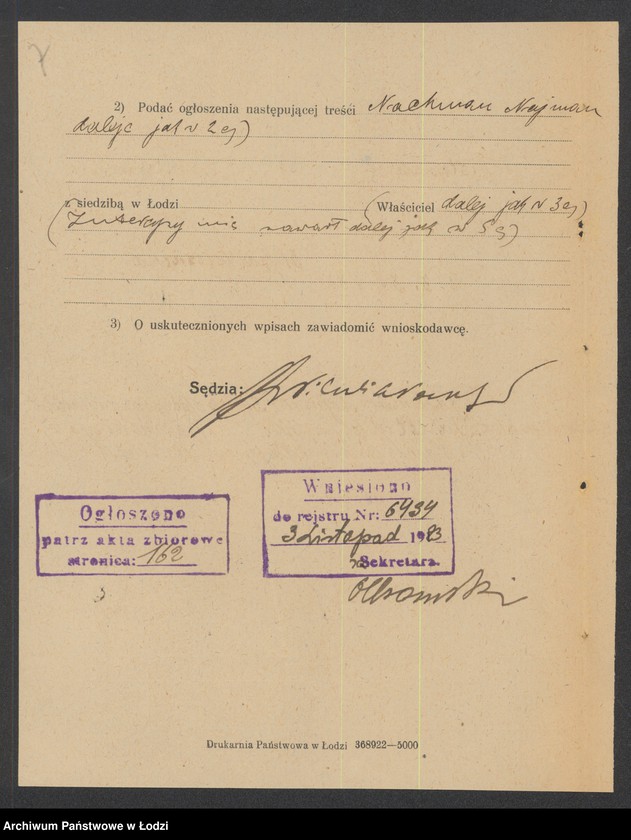 2) Podać ogłoszenia następującej treści Nachman Najman
dalej jak w 2 ej)
z siedzibą w Łodzi (Właściciel dalej jak w 3 ej)
(Intercyzy nie zawarł dalej jak w 5 ej)
3) O uskutecznionych wpisach zawiadomić wnioskodawcę.
Sędzia:
Ogłoszono
patrz akta zbiorowe
stronica: 162
Wniesiono
do rejstru Nr: 6434
3 Listopad 1923
Sekretarz.
Drukarnia Państwowa w Łodzi 368922—5000
Archiwum Państwowe w Łodzi